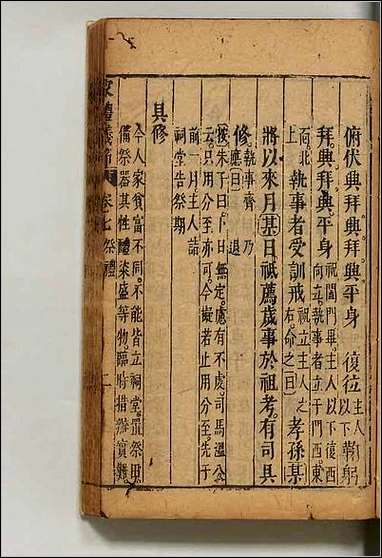 俯伏興拜興拜興平身　復位主人以下鞠躬
拜興拜興平身祝闔門畢主人以下復西向立執事者立于門西東
向北上執事者受訓戒祝立主人之右命之曰孝孫某
將以來月某日祗薦歲事於祖考有司具
修應曰諾執事齊　退　乃
按朱子曰卜日無定慮有不虔司馬溫公
云只用分至亦可今擬若止用分至先于
前一月主人詣
祠堂告祭期
具修
今人家貧富不同不能皆立祠堂置祭田
備祭器其牲醴粢盛等物臨時措辦實難
家禮儀節　卷七　祭禮　二